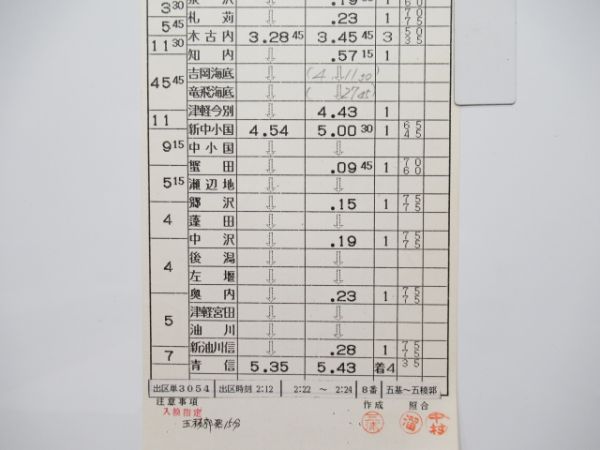 3 30
泉沢 ⇩ .19 1 70 60
札苅 ⇩ .23 1 70 75
5 45
木古内 3.28 45 3.45 45 3 50 35
11 30
知内 ⇩ .57 15 1
吉岡海底 ⇩ (4.11 30)
竜飛海底 ⇩ ( .27 45)
45 45
津軽今別 ⇩ 4.43 1
11
新中小国 4.54 5.00 30 1 65 45
中小国 ⇩ ⇩
9 15
蟹田 ⇩ .09 45 1 70 60
瀬辺地 ⇩ ⇩
5 15
郷沢 ⇩ .15 1 75 75
4
蓬田 ⇩ ⇩
中沢 ⇩ .19 1 75 75
4
後潟 ⇩ ⇩
左堰 ⇩ ⇩
奥内 ⇩ .23 1 75 75
5
津軽宮田 ⇩ ⇩
油川 ⇩ ⇩
新油川信 ⇩ .28 1 75 75
7
青信 5.35 5.43 着4 35
出区単3054 出区時刻 2:12 2:22 ～ 2:24 8番 五基～五稜郭
注意事項 作成 照合
入換指定
五稜郭発15分
中村